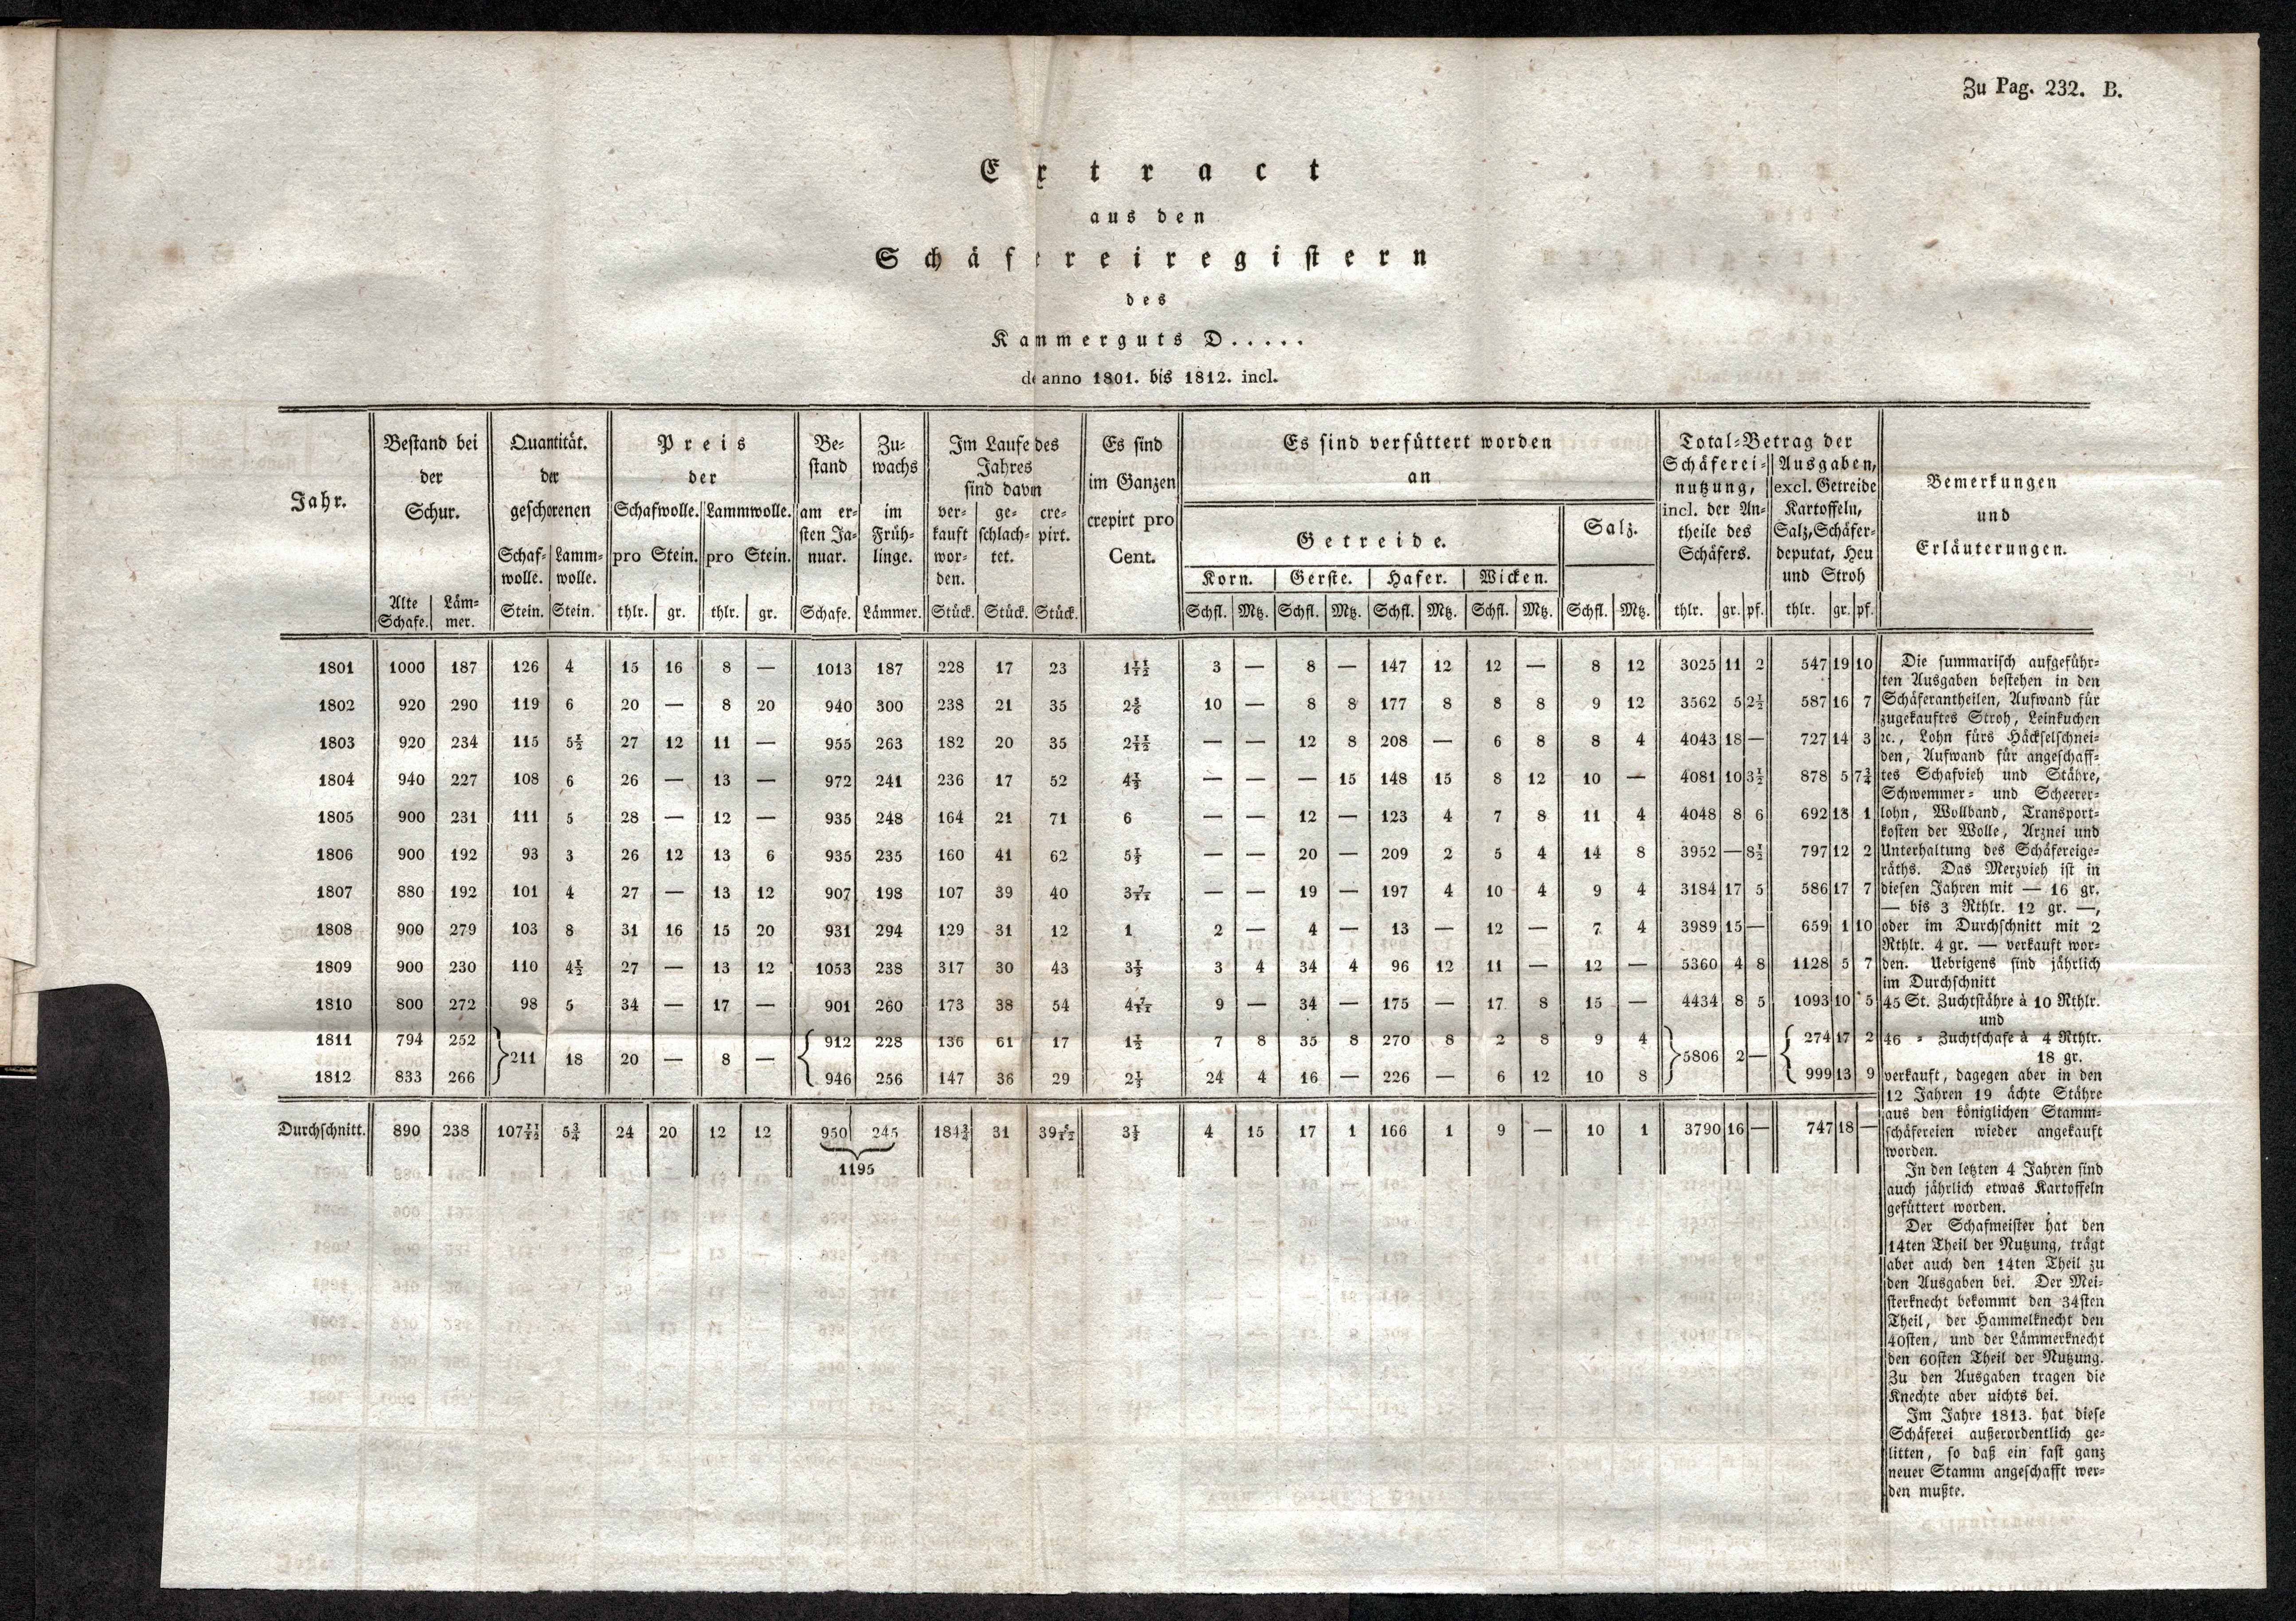 Zu Pag. 232. B.
Extract
aus den
Schäfereiregistern
des
Kammerguts D.....
de anno 1801. bis 1812. incl.
Jahr. | Bestand bei der Schur. | Quantität. der geschorenen | Preis der | Bestand | Zuwachs | Im Laufe des Jahres sind davon | Es sind im Ganzen crepirt pro Cent. | Es sind verfüttert worden an | Total-Betrag der | Bemerkungen und Erläuterungen.
Schafwolle. | Lammwolle. | Schafwolle. pro Stein. | Lammwolle. pro Stein. | am ersten Januar. | im Frühlinge. | verkauft worden. | geschlachtet. | crepirt. | Getreide. | Salz. | Schäfereinutzung, incl. der Antheile des Schäfers. | Ausgaben, excl. Getreide Kartoffeln, Salz, Schäferdeputat, Heu und Stroh
Korn. | Gerste. | Hafer. | Wicken.
Alte Schafe. | Lämmer. | Stein. | Stein. | thlr. | gr. | thlr. | gr. | Schafe. | Lämmer. | Stück. | Stück. | Stück. | Schfl. | Mtz. | Schfl. | Mtz. | Schfl. | Mtz. | Schfl. | Mtz. | Schfl. | Mtz. | thlr. | gr. | pf. | thlr. | gr. | pf.
1801 | 1000 | 187 | 126 | 4 | 15 | 16 | 8 | — | 1013 | 187 | 228 | 17 | 23 | 1 11/12 | 3 | — | 8 | — | 147 | 12 | 12 | — | 8 | 12 | 3025 | 11 | 2 | 547 | 19 | 10
1802 | 920 | 290 | 119 | 6 | 20 | — | 8 | 20 | 940 | 300 | 238 | 21 | 35 | 2 5/6 | 10 | — | 8 | 8 | 177 | 8 | 8 | 8 | 9 | 12 | 3562 | 5 | 2 1/2 | 587 | 16 | 7
1803 | 920 | 234 | 115 | 5 1/2 | 27 | 12 | 11 | — | 955 | 263 | 182 | 20 | 35 | 2 11/12 | — | — | 12 | 8 | 208 | — | 6 | 8 | 8 | 4 | 4043 | 18 | — | 727 | 14 | 3
1804 | 940 | 227 | 108 | 6 | 26 | — | 13 | — | 972 | 241 | 236 | 17 | 52 | 4 1/3 | — | — | — | 15 | 148 | 15 | 8 | 12 | 10 | — | 4081 | 10 | 3 1/2 | 878 | 5 | 7 3/4
1805 | 900 | 231 | 111 | 5 | 28 | — | 12 | — | 935 | 248 | 164 | 21 | 71 | 6 | — | — | 12 | — | 123 | 4 | 7 | 8 | 11 | 4 | 4048 | 8 | 6 | 692 | 13 | 1
1806 | 900 | 192 | 93 | 3 | 26 | 12 | 13 | 6 | 935 | 235 | 160 | 41 | 62 | 5 1/3 | — | — | 20 | — | 209 | 2 | 5 | 4 | 14 | 8 | 3952 | — | 8 1/2 | 797 | 12 | 2
1807 | 880 | 192 | 101 | 4 | 27 | — | 13 | 12 | 907 | 198 | 107 | 39 | 40 | 3 7/11 | — | — | 19 | — | 197 | 4 | 10 | 4 | 9 | 4 | 3184 | 17 | 5 | 586 | 17 | 7
1808 | 900 | 279 | 103 | 8 | 31 | 16 | 15 | 20 | 931 | 294 | 129 | 31 | 12 | 1 | 2 | — | 4 | — | 13 | — | 12 | — | 7 | 4 | 3989 | 15 | — | 659 | 1 | 10
1809 | 900 | 230 | 110 | 4 1/2 | 27 | — | 13 | 12 | 1053 | 238 | 317 | 30 | 43 | 3 1/3 | 3 | 4 | 34 | 4 | 96 | 12 | 11 | — | 12 | — | 5360 | 4 | 8 | 1128 | 5 | 7
1810 | 800 | 272 | 98 | 5 | 34 | — | 17 | — | 901 | 260 | 173 | 38 | 54 | 4 7/11 | 9 | — | 34 | — | 175 | — | 17 | 8 | 15 | — | 4434 | 8 | 5 | 1093 | 10 | 5
1811 | 794 | 252 | 912 | 228 | 136 | 61 | 17 | 1 1/2 | 7 | 8 | 35 | 8 | 270 | 8 | 2 | 8 | 9 | 4 | 274 | 17 | 2
} 211 | 18 | 20 | — | 8 | — { | } 5806 | 2 | — {
1812 | 833 | 266 | 946 | 256 | 147 | 36 | 29 | 2 1/3 | 24 | 4 | 16 | — | 226 | — | 6 | 12 | 10 | 8 | 999 | 13 | 9
Durchschnitt. | 890 | 238 | 107 11/12 | 5 3/4 | 24 | 20 | 12 | 12 | 950 | 245 | 184 3/4 | 31 | 39 5/12 | 3 1/3 | 4 | 15 | 17 | 1 | 166 | 1 | 9 | — | 10 | 1 | 3790 | 16 | — | 747 | 18 | —
1195
Die summarisch aufgeführ-
ten Ausgaben bestehen in den
Schäferantheilen, Aufwand für
zugekauftes Stroh, Leinkuchen
ꝛc., Lohn fürs Häckselschnei-
den, Aufwand für angeschaff-
tes Schafvieh und Stähre,
Schwemmer- und Scheerer-
lohn, Wollband, Transport-
kosten der Wolle, Arznei und
Unterhaltung des Schäfereige-
räths. Das Merzvieh ist in
diesen Jahren mit — 16 gr.
— bis 3 Rthlr. 12 gr. —,
oder im Durchschnitt mit 2
Rthlr. 4 gr. — verkauft wor-
den. Uebrigens sind jährlich
im Durchschnitt
45 St. Zuchtstähre à 10 Rthlr.
und
46 = Zuchtschafe à 4 Rthlr.
18 gr.
verkauft, dagegen aber in den
12 Jahren 19 ächte Stähre
aus den königlichen Stamm-
schäfereien wieder angekauft
worden.
In den letzten 4 Jahren sind
auch jährlich etwas Kartoffeln
gefüttert worden.
Der Schafmeister hat den
14ten Theil der Nutzung, trägt
aber auch den 14ten Theil zu
den Ausgaben bei. Der Mei-
sterknecht bekommt den 34sten
Theil, der Hammelknecht den
40sten, und der Lämmerknecht
den 60sten Theil der Nutzung.
Zu den Ausgaben tragen die
Knechte aber nichts bei.
Im Jahre 1813. hat diese
Schäferei außerordentlich ge-
litten, so daß ein fast ganz
neuer Stamm angeschafft wer-
den mußte.